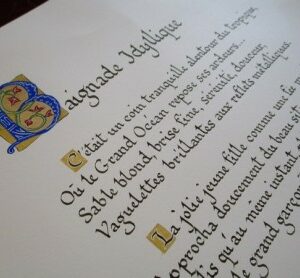 Baignade Idyllique
C'était un coin tranquille alentour du tropique,
Où le Grand Océan repose ses ardeurs...
Sable blond, brise fine, sérénité, douceur,
Vaguelettes brillantes aux reflets métalliques.
La jolie jeune fille comme une
approcha doucement du beau
qu'au même instant
grand garçon